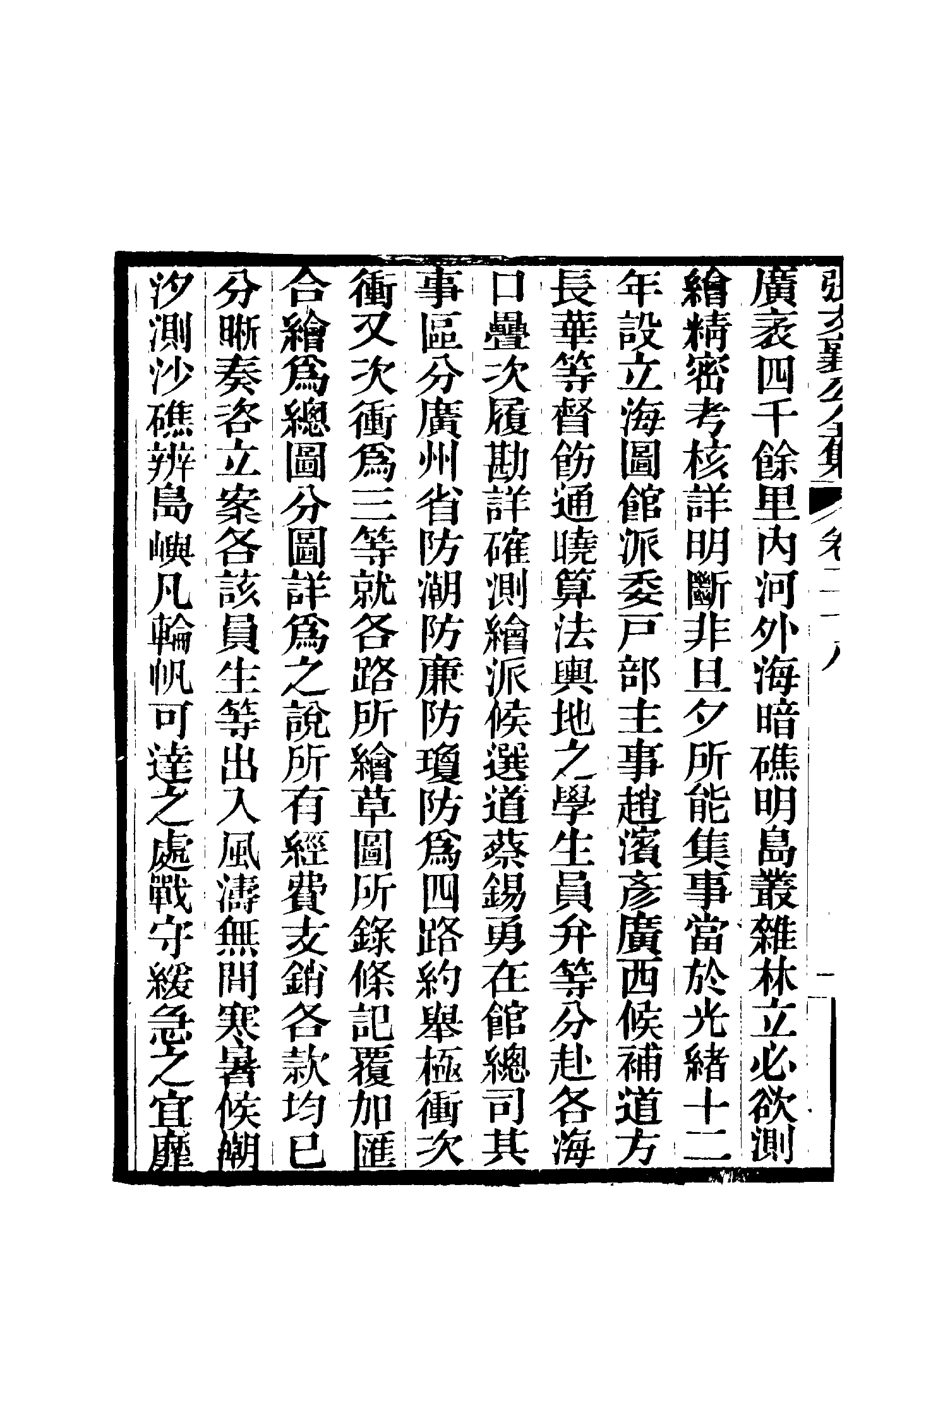 張文襄公全集 卷二十八 一
廣袤四千餘里内河外海暗礁明島叢雜林立必欲測
繪精密考核詳明斷非旦夕所能集事當於光緒十二
年設立海圖館派委戸部主事趙濱彥廣西候補道方
長華等督飭通曉算法輿地之學生員弁等分赴各海
口疊次履勘詳確測繪派候選道蔡錫勇在館總司其
事區分廣州省防潮防廉防瓊防爲四路約舉極衝次
衝又次衝爲三等就各路所繪草圖所錄條記覆加匯
合繪爲總圖分圖詳爲之說所有經費支銷各款均已
分晰奏咨立案各該員生等出入風濤無間寒暑候潮
汐測沙礁辨島嶼凡輪帆可達之處戰守緩急之宜靡